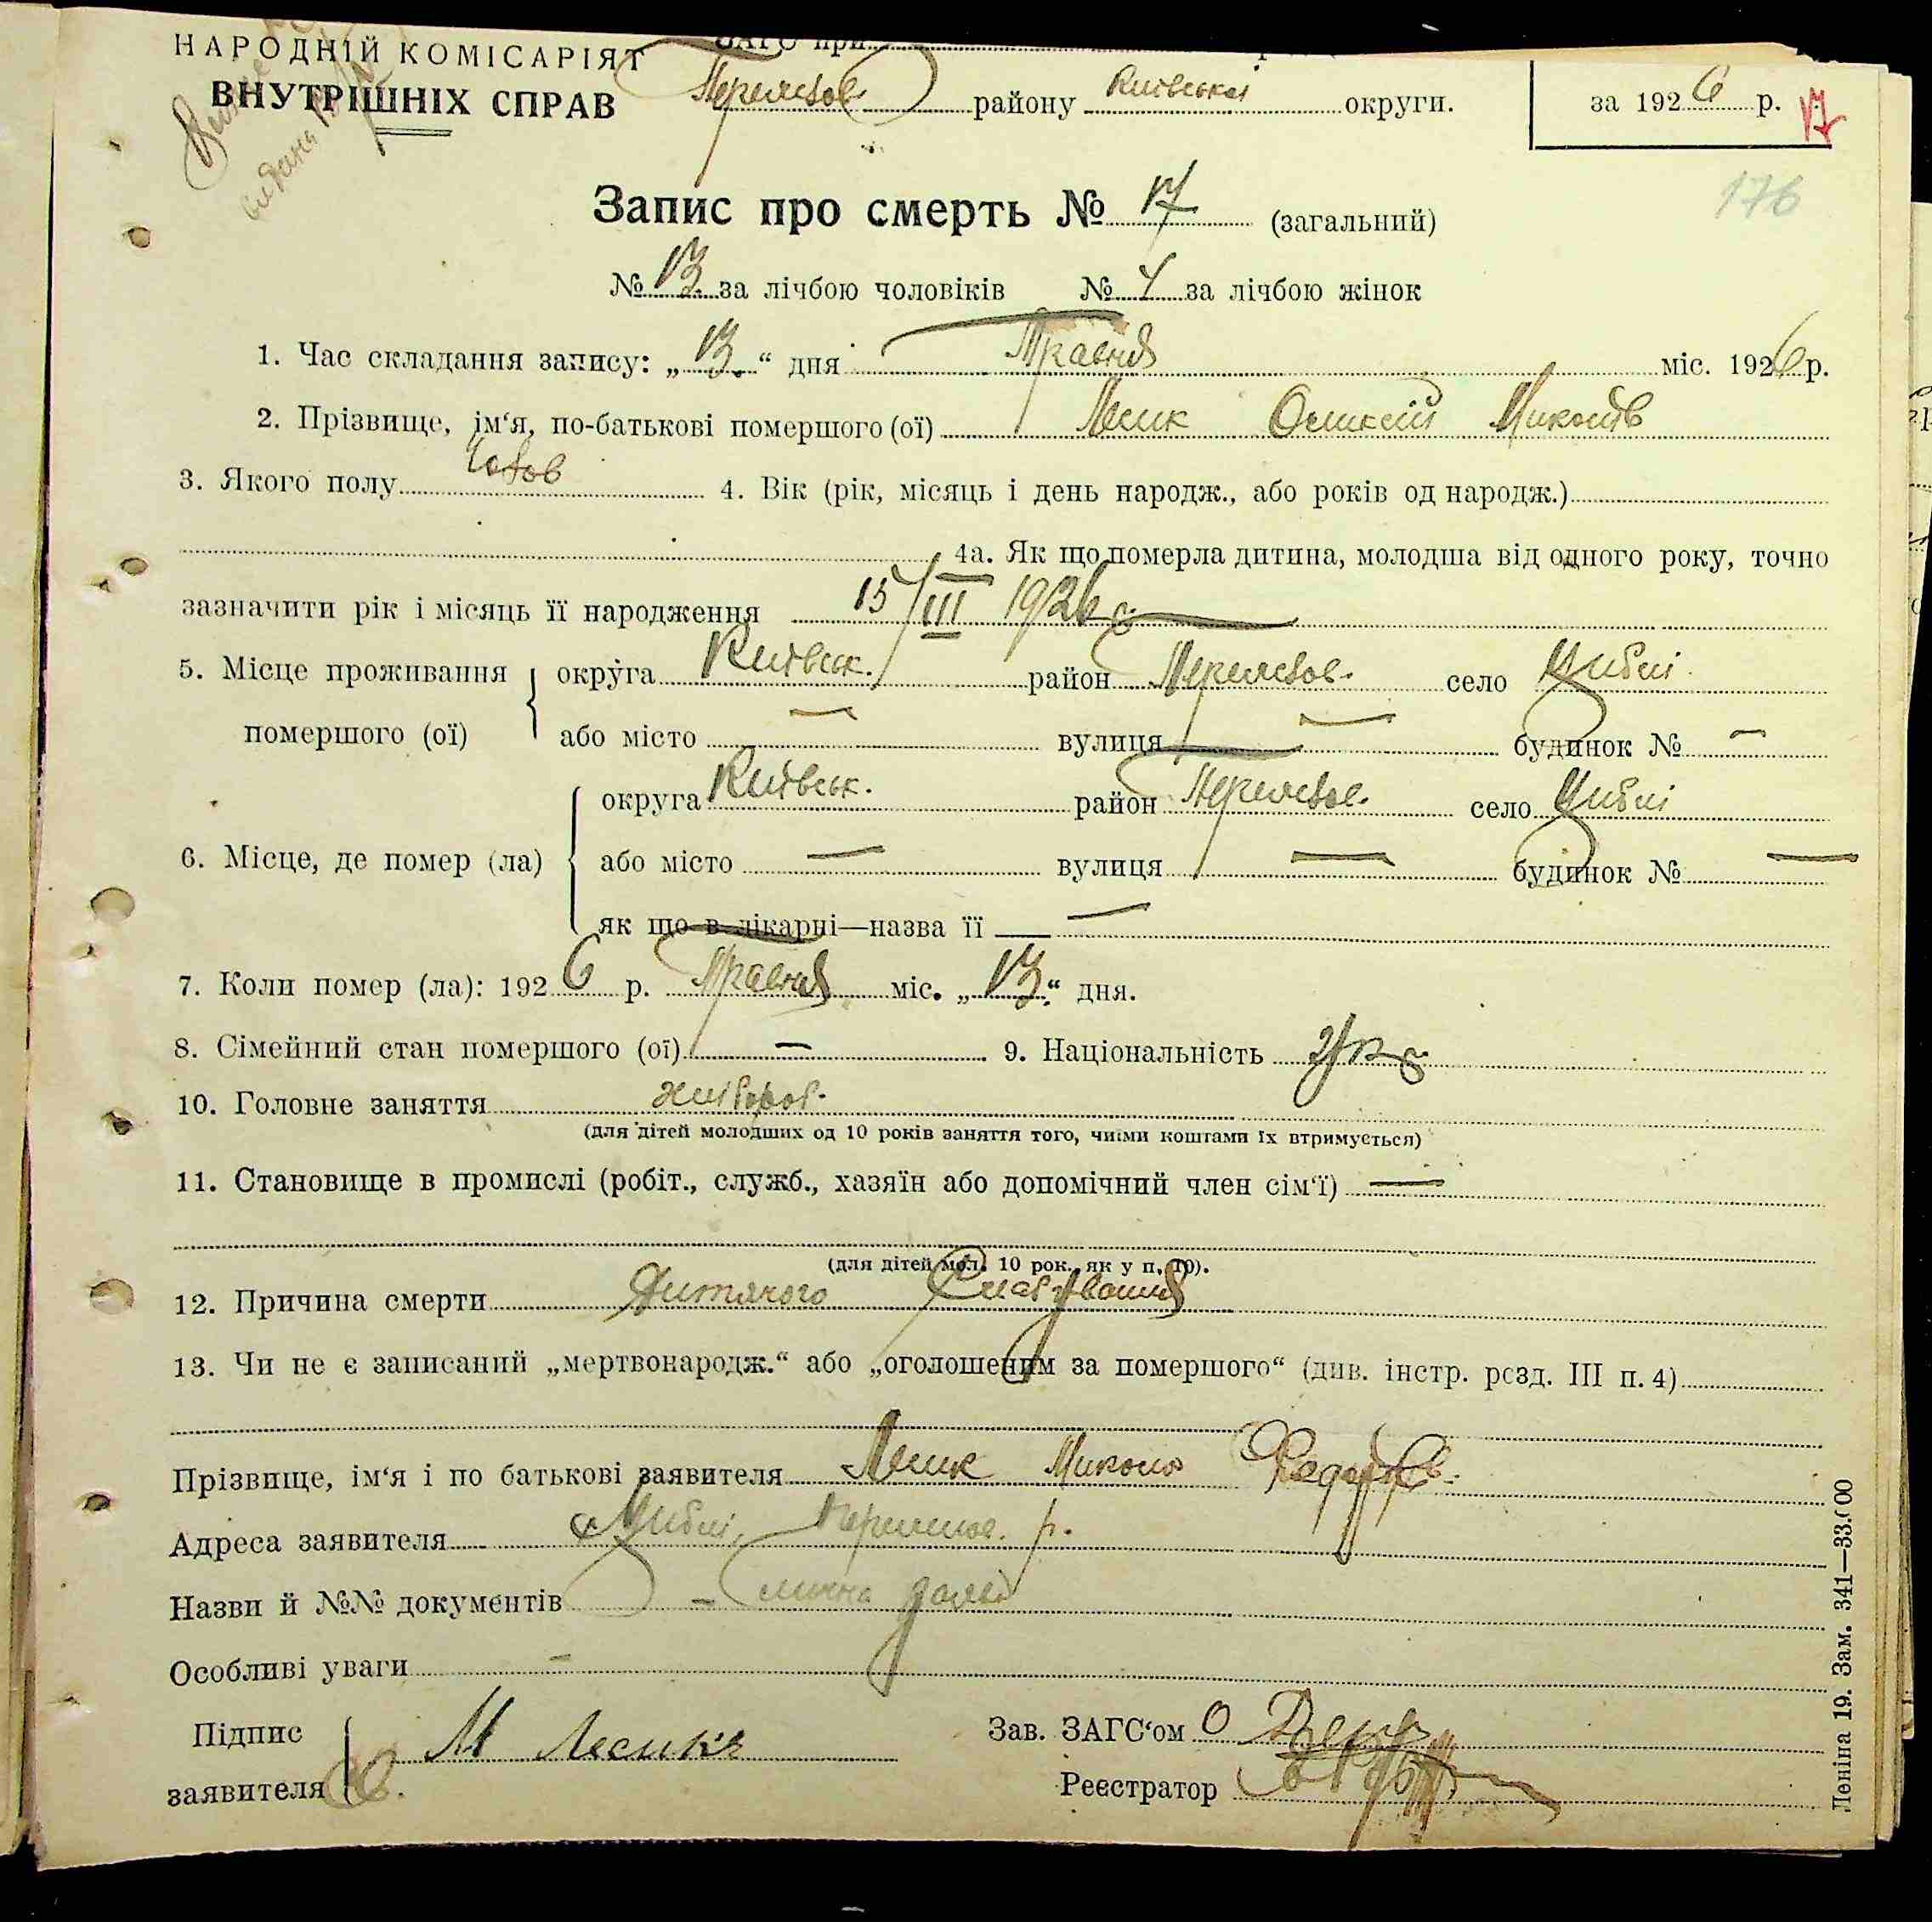 НАРОДНІЙ КОМІСАРІЯТ
ВНУТРІШНІХ СПРАВ
ЗАГС при
Переясдов району Київської округи.
за 1926 р. 17
176
Запис про смерть № 17 (загальний)
№ 13 за лічбою чоловіків № 4 за лічбою жінок
1. Час складання запису: „13.“ дня Травня міс. 1926 р.
2. Прізвище, ім‘я, по-батькові помершого (ої) Лесик Олексій Миколів
3. Якого полу Чолов 4. Вік (рік, місяць і день народж., або років од народж.)
4а. Як що померла дитина, молодша від одного року, точно
зазначити рік і місяць її народження 15/III 1926
5. Місце проживання помершого (ої) округа Київськ. район Переяслов. село Циблі
або місто — вулиця — будинок № —
6. Місце, де помер (ла) округа Київськ. район Переяслов. село Циблі
або місто — вулиця — будинок № —
як що в лікарні—назва її —
7. Коли помер (ла): 1926 р. Травня міс. „13.“ дня.
8. Сімейний стан помершого (ої) — 9. Національність Укр
10. Головне заняття хлібороб.
(для дітей молодших од 10 років заняття того, чиїми коштами їх втримується)
11. Становище в промислі (робіт., служб., хазяїн або допомічний член сім‘ї) —
(для дітей мол. 10 рок. як у п. 10).
12. Причина смерти Дитячого Слабування
13. Чи не є записаний „мертвонародж.“ або „оголошеним за помершого“ (див. інстр. розд. III п. 4)
Прізвище, ім‘я і по батькові заявителя Лесик Микола Федоров.
Адреса заявителя с Циблі, Переяслов. р.
Назви й №№ документів —
Особливі уваги —
Підпис заявителя М Лесика
Зав. ЗАГС‘ом
Реєстратор
Леніна 19. Зам. 341—33.000